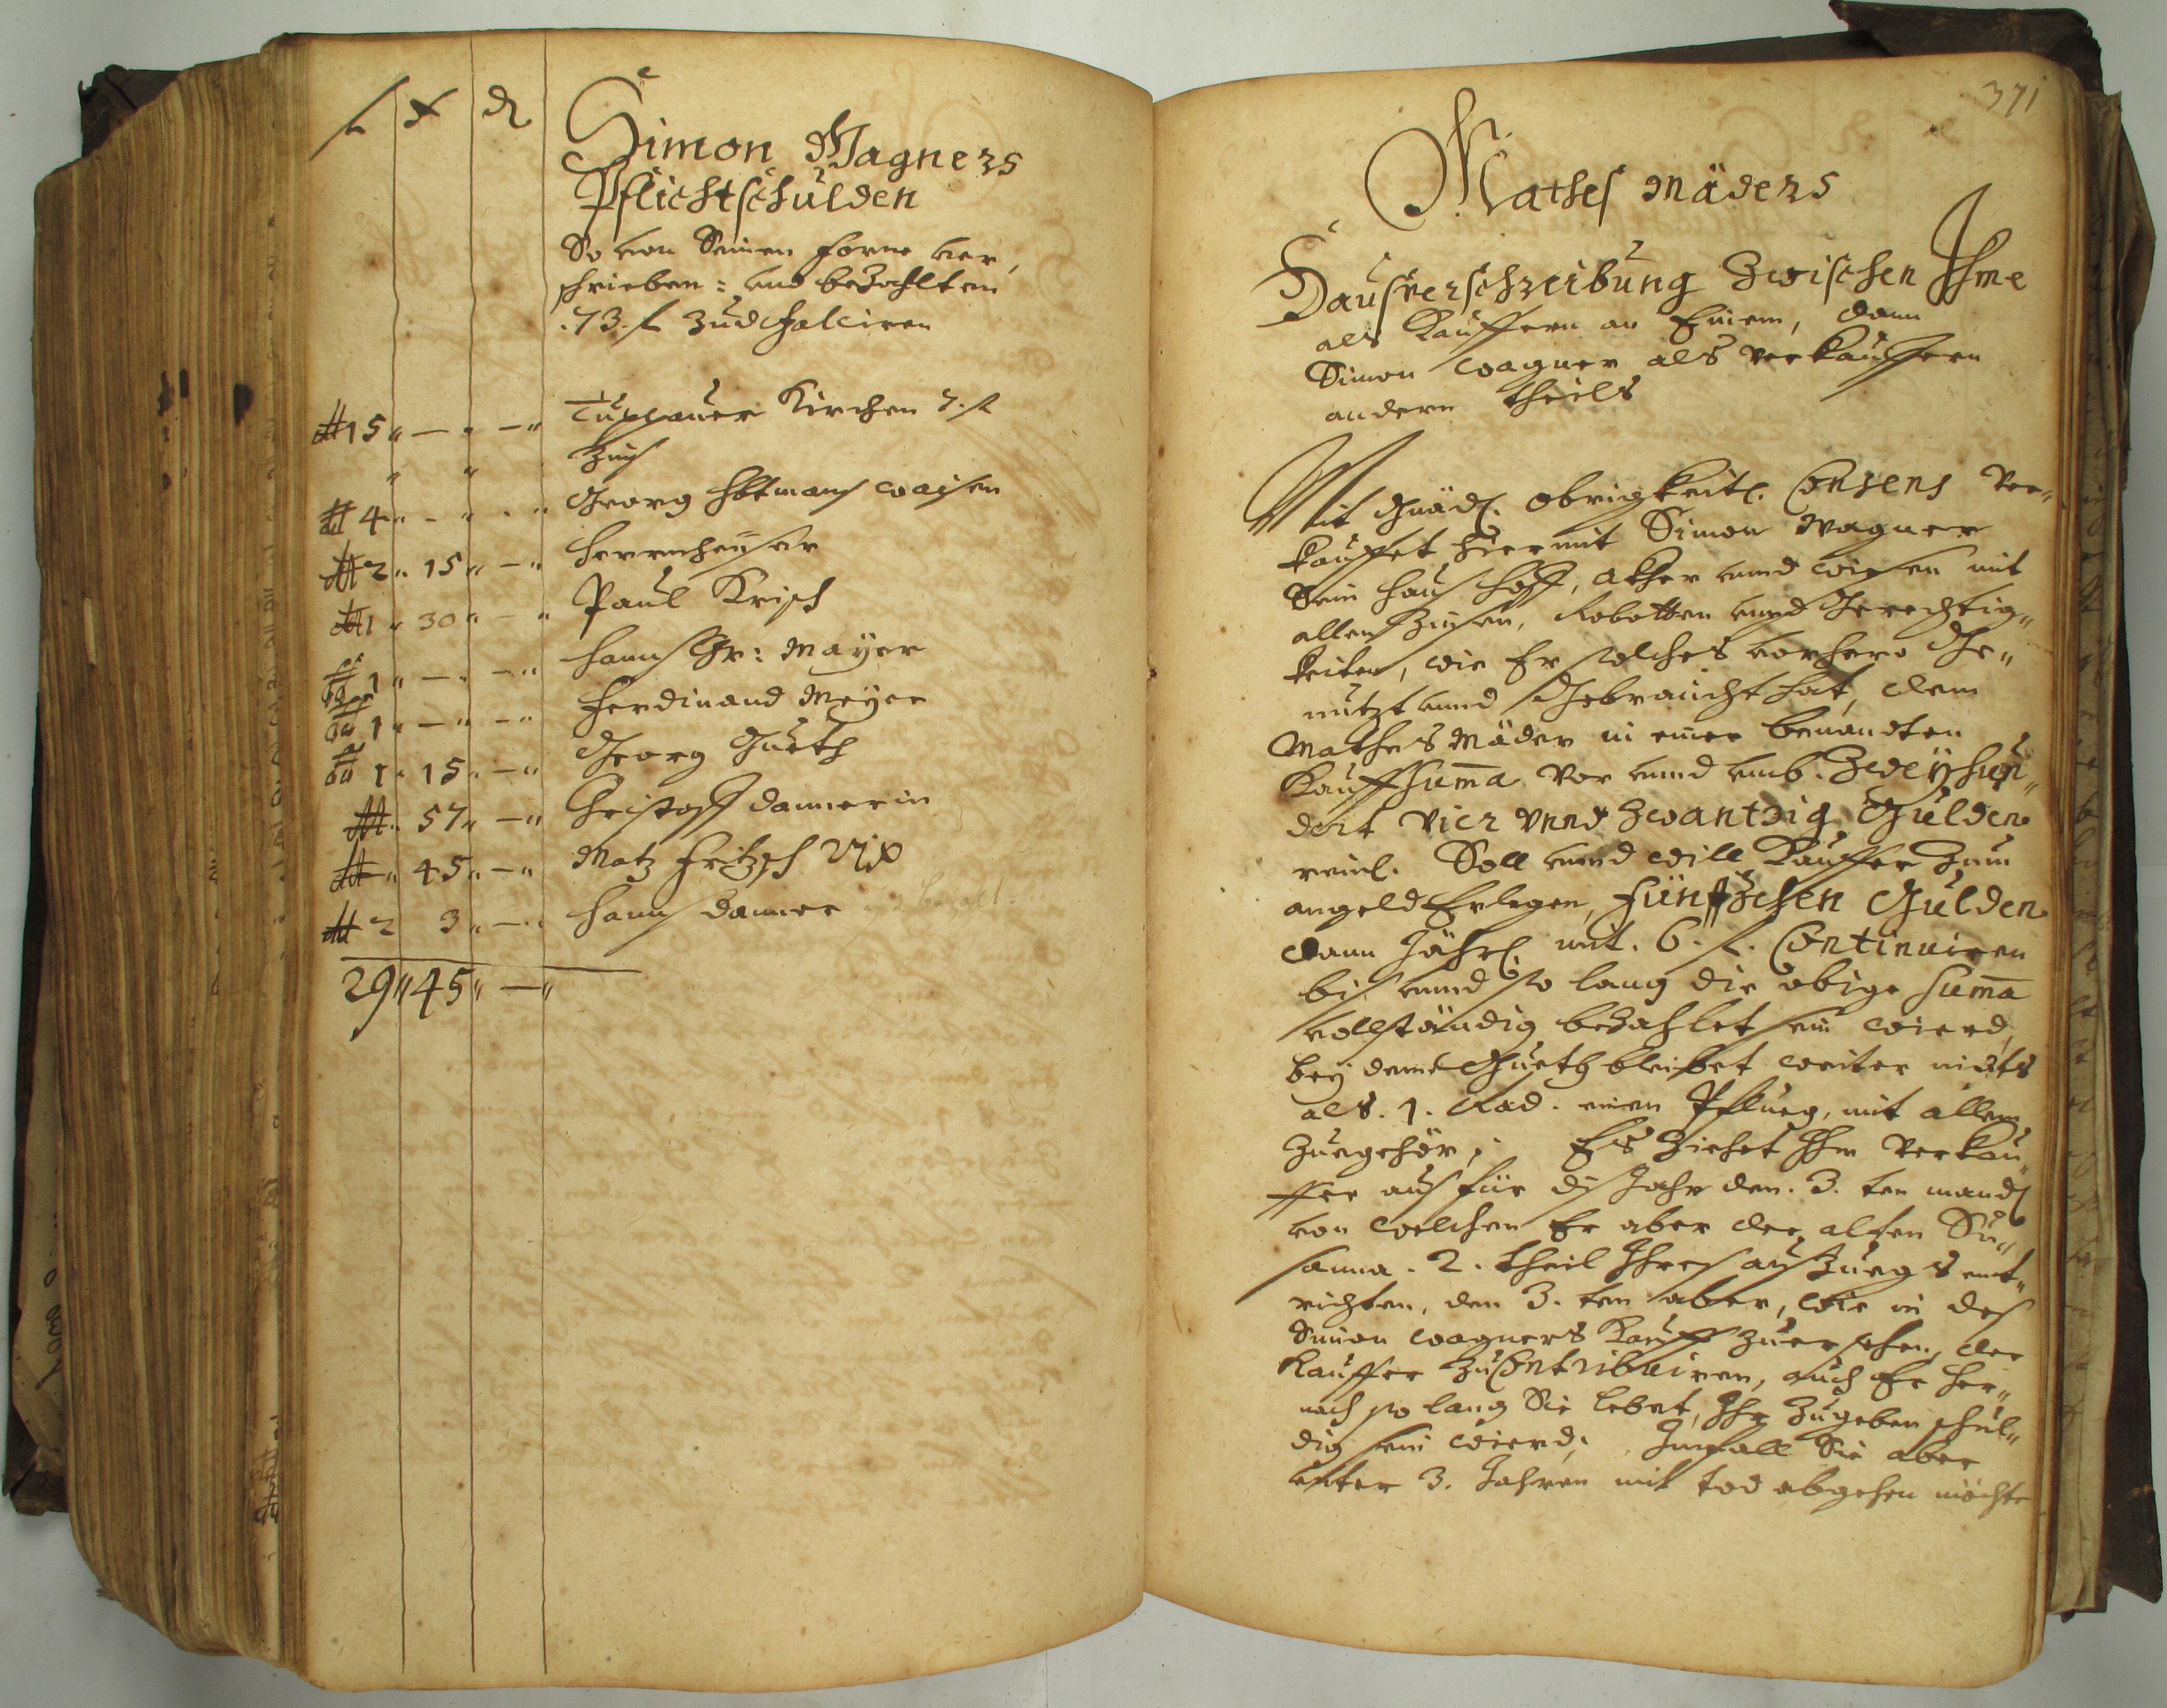 f x d
Simon Wagners
Pflichtschulden
So von Seinen forne ver,
schrieben: und bezahlten
.73. f zu defalciren
15 " — " — " Tuppauer Kirchen 7. f
" " Zinß
4 " - " - " Georg Waisen
2 " 15 " — " Herrnheüser
1 " 30 " — " Paul Krisch
1 " — " — " Hannß Gr: Mayer
1 " — " — " Ferdinand Meyer
1 " 15 " — " Georg Gueth
" 57 " — " Christoff Dannerin
" 45 " — " Matz Fritzsch
2 3 " — " Hannß Danner
29 " 45 " — "
371
Mathes Mäders
Hausverschreibung Zwischen Ihme
als Kauffern an Einem, dann
Simon Wagner als Verkauffern
andern theils
Mit Gnäd. Obrigkeitl. Consens Ver„
kauffet hiermit Simon Wagner
Sein Hauß Hoff, Äkher unnd Wiesen mit
allen Zinsen, Robotten unnd Gerechtig„
keiten, wie Er solches vorhero Ge„
nützt unnd Gebraucht hat, dem
Mathes Mäder in einer benandten
Kauffsuma Vor unnd umb. Zweÿhun„
dert Vier Unnd Zwantzig Gulden
reinl. Soll unnd will Kauffer Zum
angeld Erlegen, Fünffzehen Gulden
dann Jährl mit. 6. f. Continuiren
biß unnd so lang die obige Suma
vollständig bezahlet sein wierd,
beÿ deme Gueth bleibet weiter nichts
als. 1. Rad. einen Pflueg, mit allem
Zuegehör; Es Ziehet Ihm Verkau„
ffer auß für diß Jahr den. 3. ten mandl
von welchen Er aber der alten Su„
sanna. 2. theil Ihres außzuegs ent„
richten, den 3. ten aber, wie in deß
Simon Wagners Kauff zuersehen, der
Kauffer Zu Contribuiren, auch Er her„
nach so lang Sie lebet, Ihr Zugeben schul„
dig sein wierd; Imfall Sie aber
unter 3. Jahren mit tod abgehen möchte